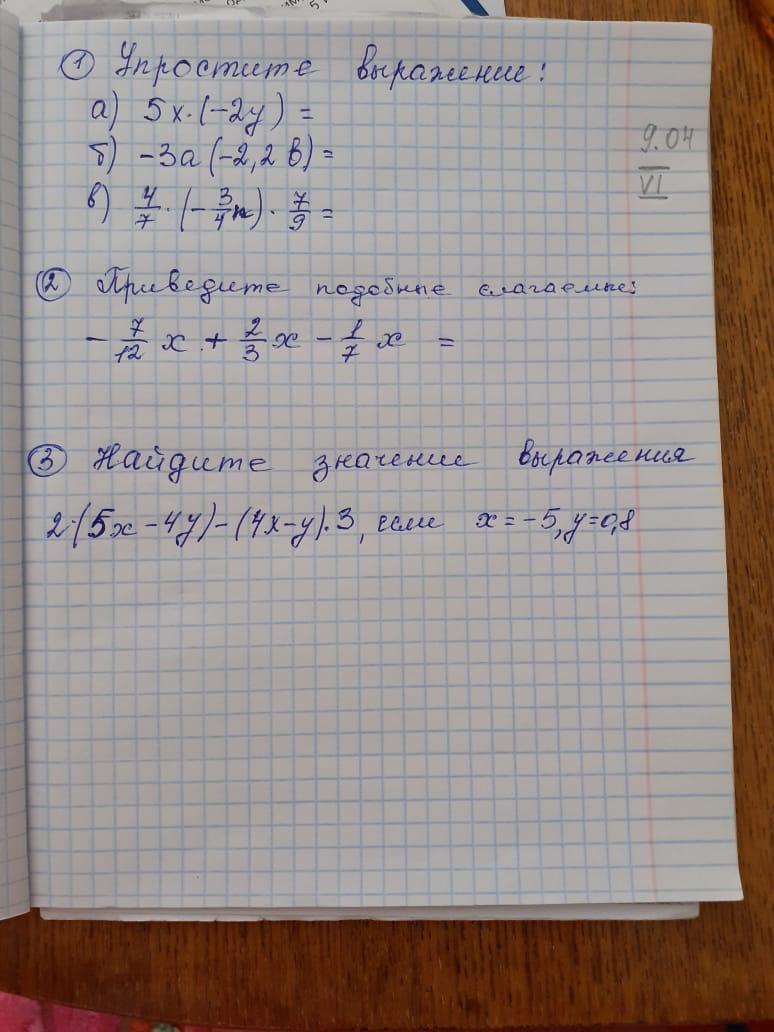 ① Упростите выражение:
а) 5x·(-2y) =
9.04
VI
б) -3a(-2,2b) =
в) 4/7·(-3/4n)·7/9 =
② Приведите подобные слагаемые:
-7/12 x + 2/3 x - 1/7 x =
③ Найдите значение выражения
2·(5x-4y)-(4x-y)·3, если x=-5, y=0,8